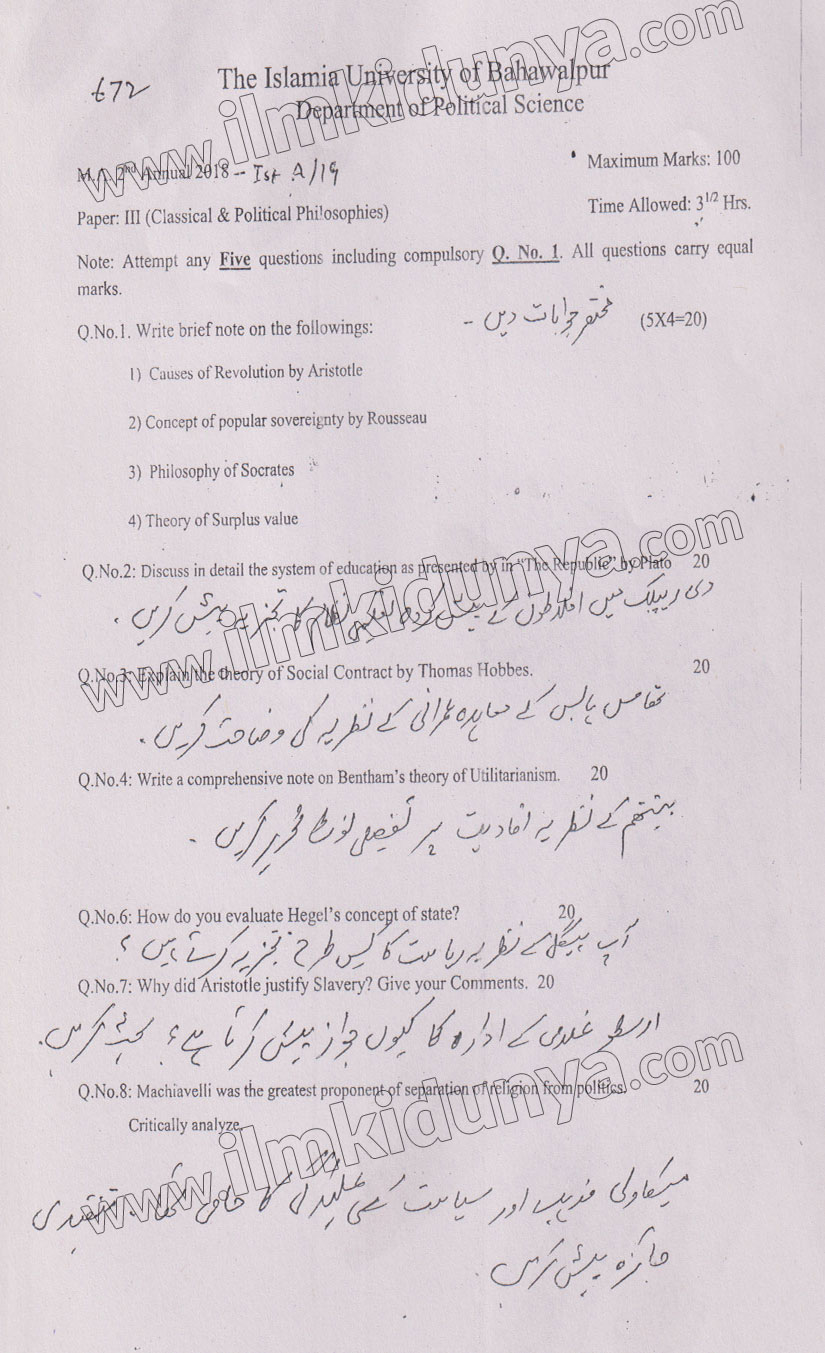 www.ilmkidunya.com
672
The Islamia University of Bahawalpur
Department of Political Science
M.A. 2nd Annual 2018 - Ist A/19
Maximum Marks: 100
Paper: III (Classical & Political Philosophies)
Time Allowed: 3 1/2 Hrs.
Note: Attempt any Five questions including compulsory Q. No. 1. All questions carry equal
marks.
Q.No.1. Write brief note on the followings: مختصر جوابات دیں - (5X4=20)
1) Causes of Revolution by Aristotle
2) Concept of popular sovereignty by Rousseau
3) Philosophy of Socrates
4) Theory of Surplus value
www.ilmkidunya.com
Q.No.2: Discuss in detail the system of education as presented by in "The Republic" by Plato 20
دی ریپبلک میں افلاطون کے پیش کردہ تعلیمی نظام کا تجزیہ پیش کریں ۔
Q.No.3: Explain the theory of Social Contract by Thomas Hobbes. 20
تھامس ہابس کے معاہدہ عمرانی کے نظریہ کی وضاحت کریں ۔
Q.No.4: Write a comprehensive note on Bentham's theory of Utilitarianism. 20
بینتھم کے نظریہ افادیت پر تفصیلی نوٹ تحریر کریں ۔
Q.No.6: How do you evaluate Hegel's concept of state? 20
آپ ہیگل کے نظریہ ریاست کا کس طرح تجزیہ کرتے ہیں ؟
Q.No.7: Why did Aristotle justify Slavery? Give your Comments. 20
ارسطو غلامی کے ادارہ کا کیوں جواز پیش کرتا ہے؟ بحث کریں ۔
Q.No.8: Machiavelli was the greatest proponent of separation of religion from politics. 20
Critically analyze.
www.ilmkidunya.com
میکاولی مذہب اور سیاست کی علیحدگی کا حامی تھا ۔ تنقیدی
جائزہ پیش کریں ۔